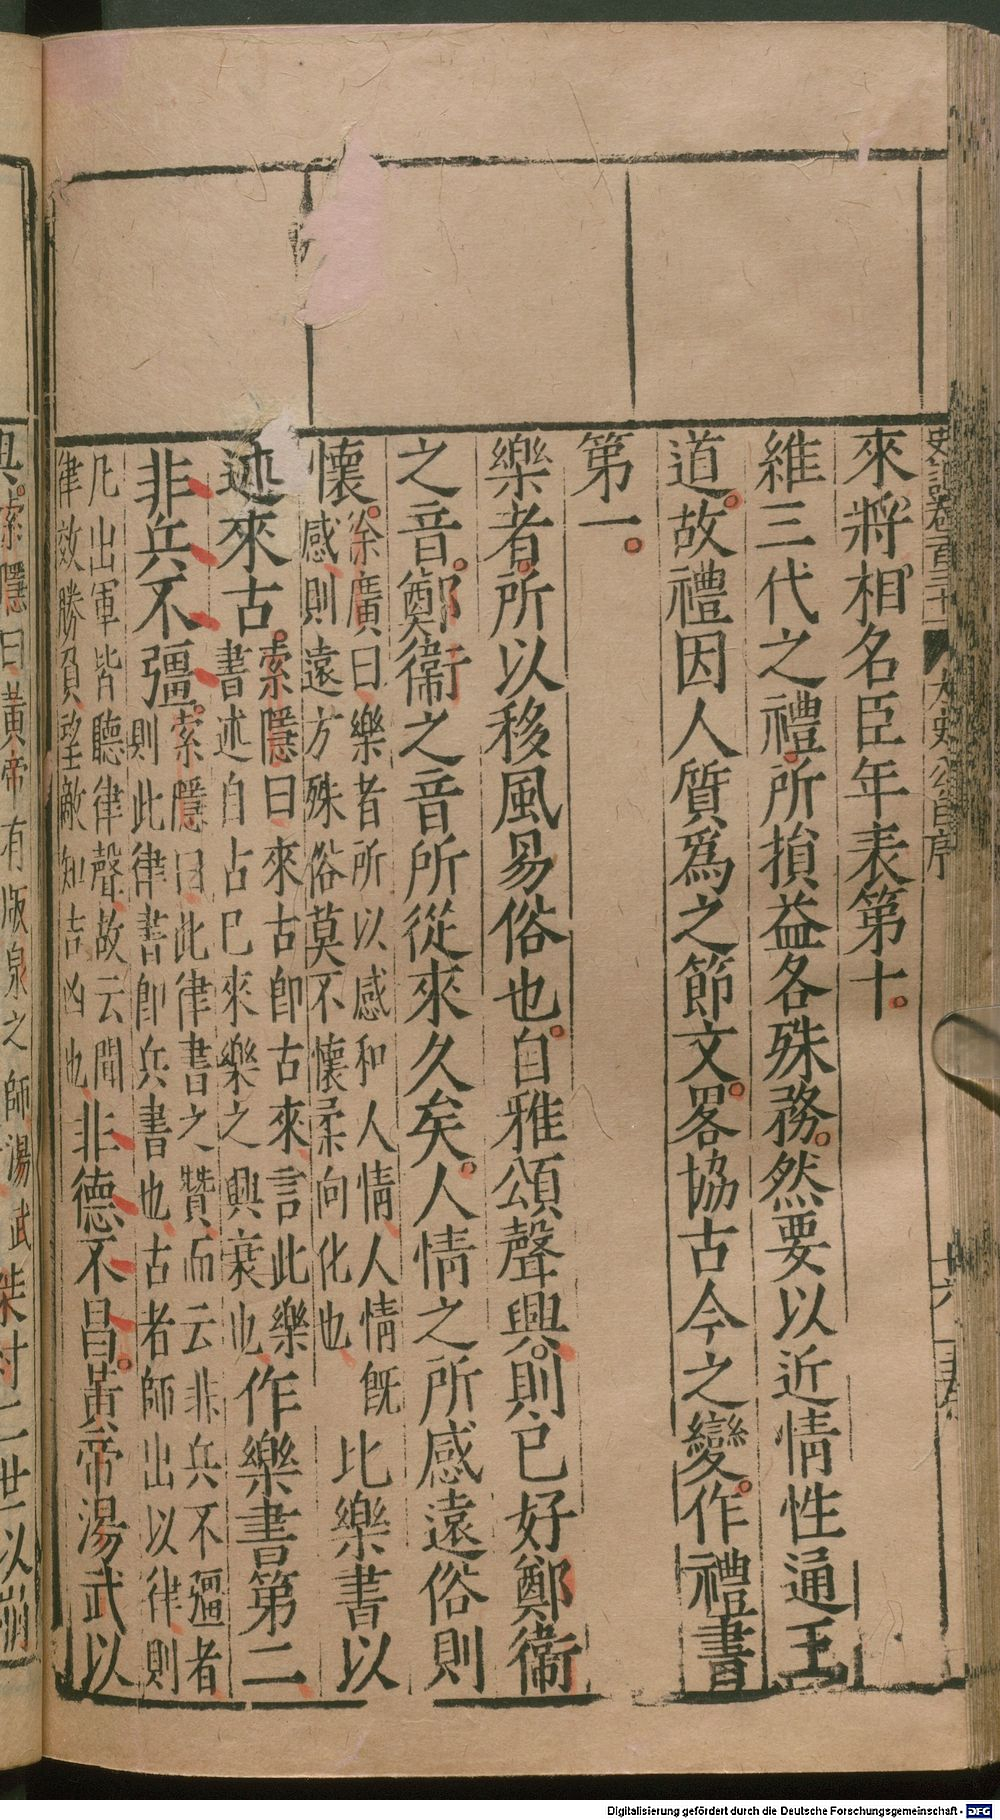 來將相名臣年表第十
維三代之禮所損益各殊務然要以近情性通王
道故禮因人質爲之節文畧協古今之變作禮書
第一
樂者所以移風易俗也自雅頌聲興則已好鄭衞
之音鄭衞之音所從來久矣人情之所感遠俗則
懷
徐廣曰樂者所以感和人情人情既
感則遠方殊俗莫不懷柔向化也
比樂書以
述來古
索隱曰來古即古來言此樂
書述自古已來樂之興衰也
作樂書第二
非兵不彊
索隱曰此律書之贊而云非兵不彊者
則此律書即兵書也古者師出以律則
凡出軍皆聽律聲故云聞
律效勝負望敵知吉凶也
非德不昌黃帝湯武以
索隱曰黃帝有版泉之師湯武
桀紂二世以崩
史記卷百三十
太史公自序
十六
Digitalisierung gefördert durch die Deutsche Forschungsgemeinschaft - DFG